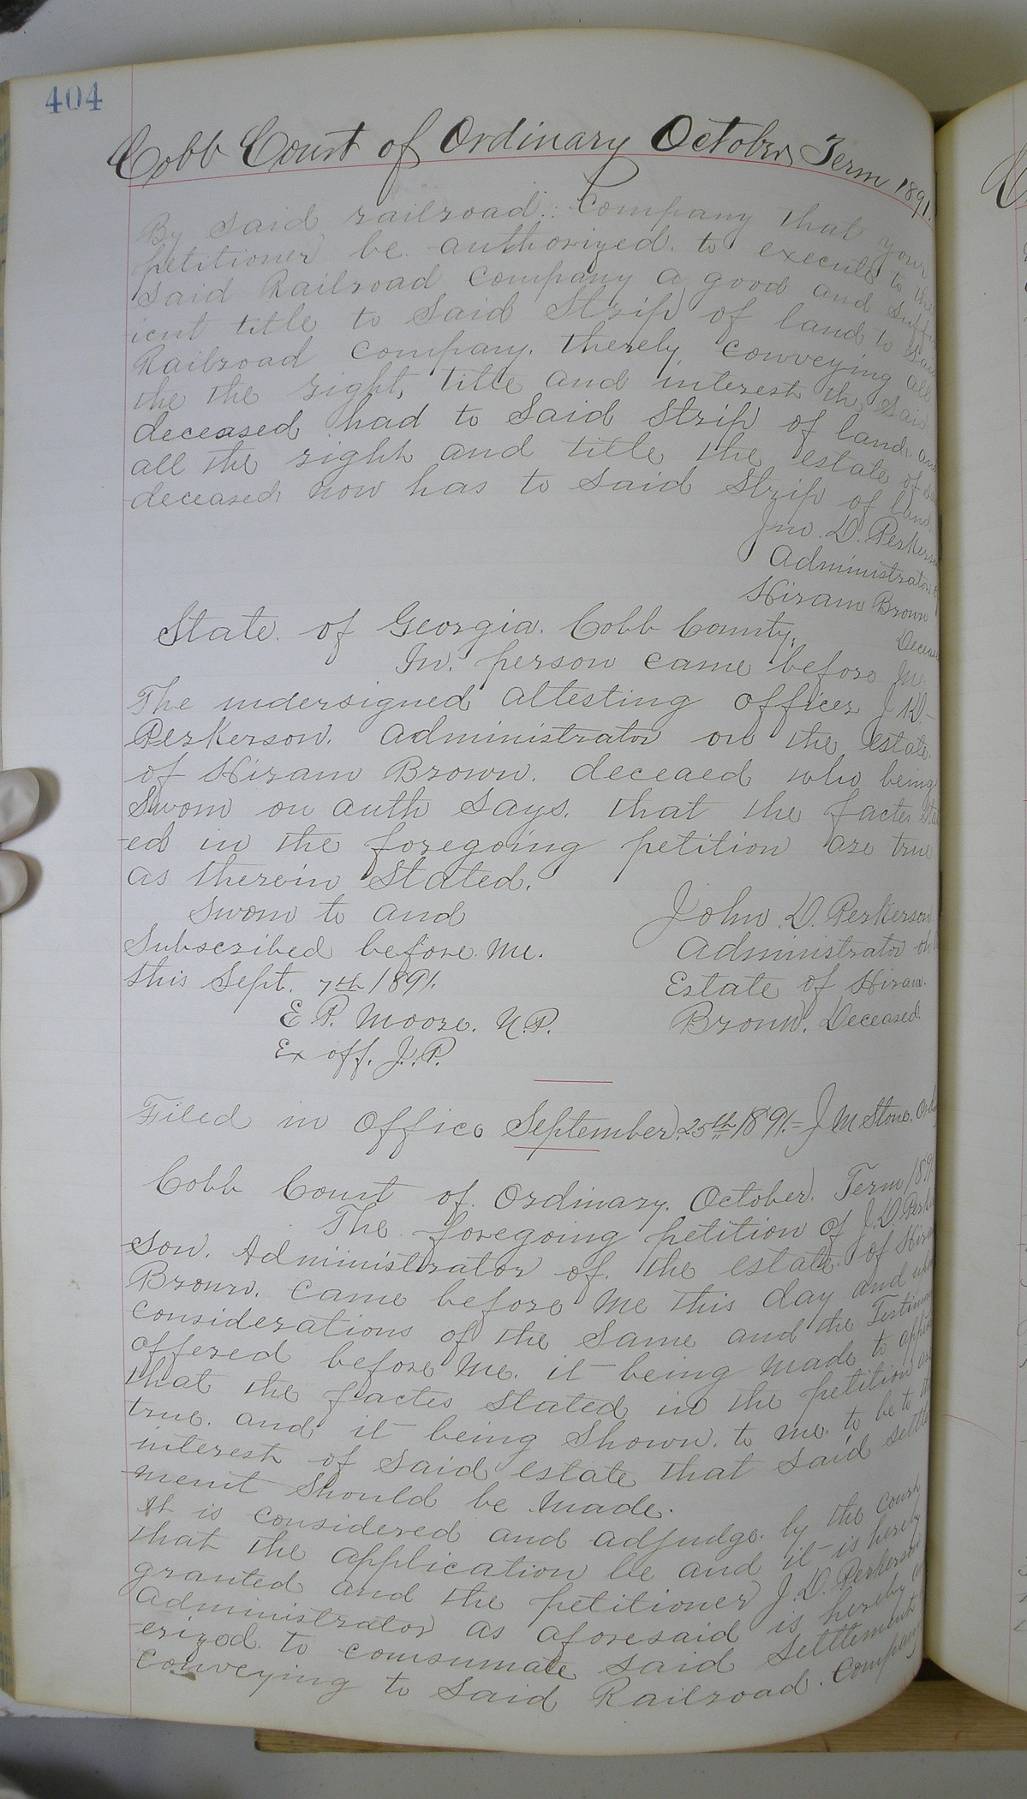 404
Cobb Court of Ordinary October Term 1891.
By Said railroad Company that your
petitioner be authorized to execute to the
Said Railroad Company a good and Suff
icent title to Said Strip of land to Said
Railroad Company. therely conveying all
the the right, title and interest the Said
deceased had to Said Strip of land and
all the right and title the estate of
deceased now has to Said Strip of land
Jno. D. Perkerso
Administrator
Hiram Brown
Deceas
State of Georgia. Cobb County,
In. person came before Me
The undersigned attesting officer J. D.
Perkerson. administrator on the estate
of Hiram Brown. deceaed who being
Sworn on auth Says. that the factes sta
ed in the foregoing petition are true
as therein Stated.
Sworn to and
Subscribed before Me.
this Sept. 7th 1891.
E. P. Moore. N.P.
Ex off. J.P.
John D. Perkerson
administrator
Estate of Hiram
Brown. Deceased.
Filed in Office September 25th 1891.= J M Stone. Ord
Cobb Court of Ordinary. October Term 189
The foregoing petition of J. D. Perker
son. Administrator of the estate of Hiram
Brown. Came before Me this day and
considerations of the Same and the Testimo
offered before Me. it being Made to
that the factes Stated in the petition are
true. and it being Shown. to me. to be to the
interest of Said estate that Said settle
ment Should be Made.
It is considered and adjudge. by the Court
that the application be and it is hereby
granted and the petitioner J. D. Perkerson
Administrator as aforesaid is hereby
erized to comsumate Said Settlement
conveying to Said Railroad. Company